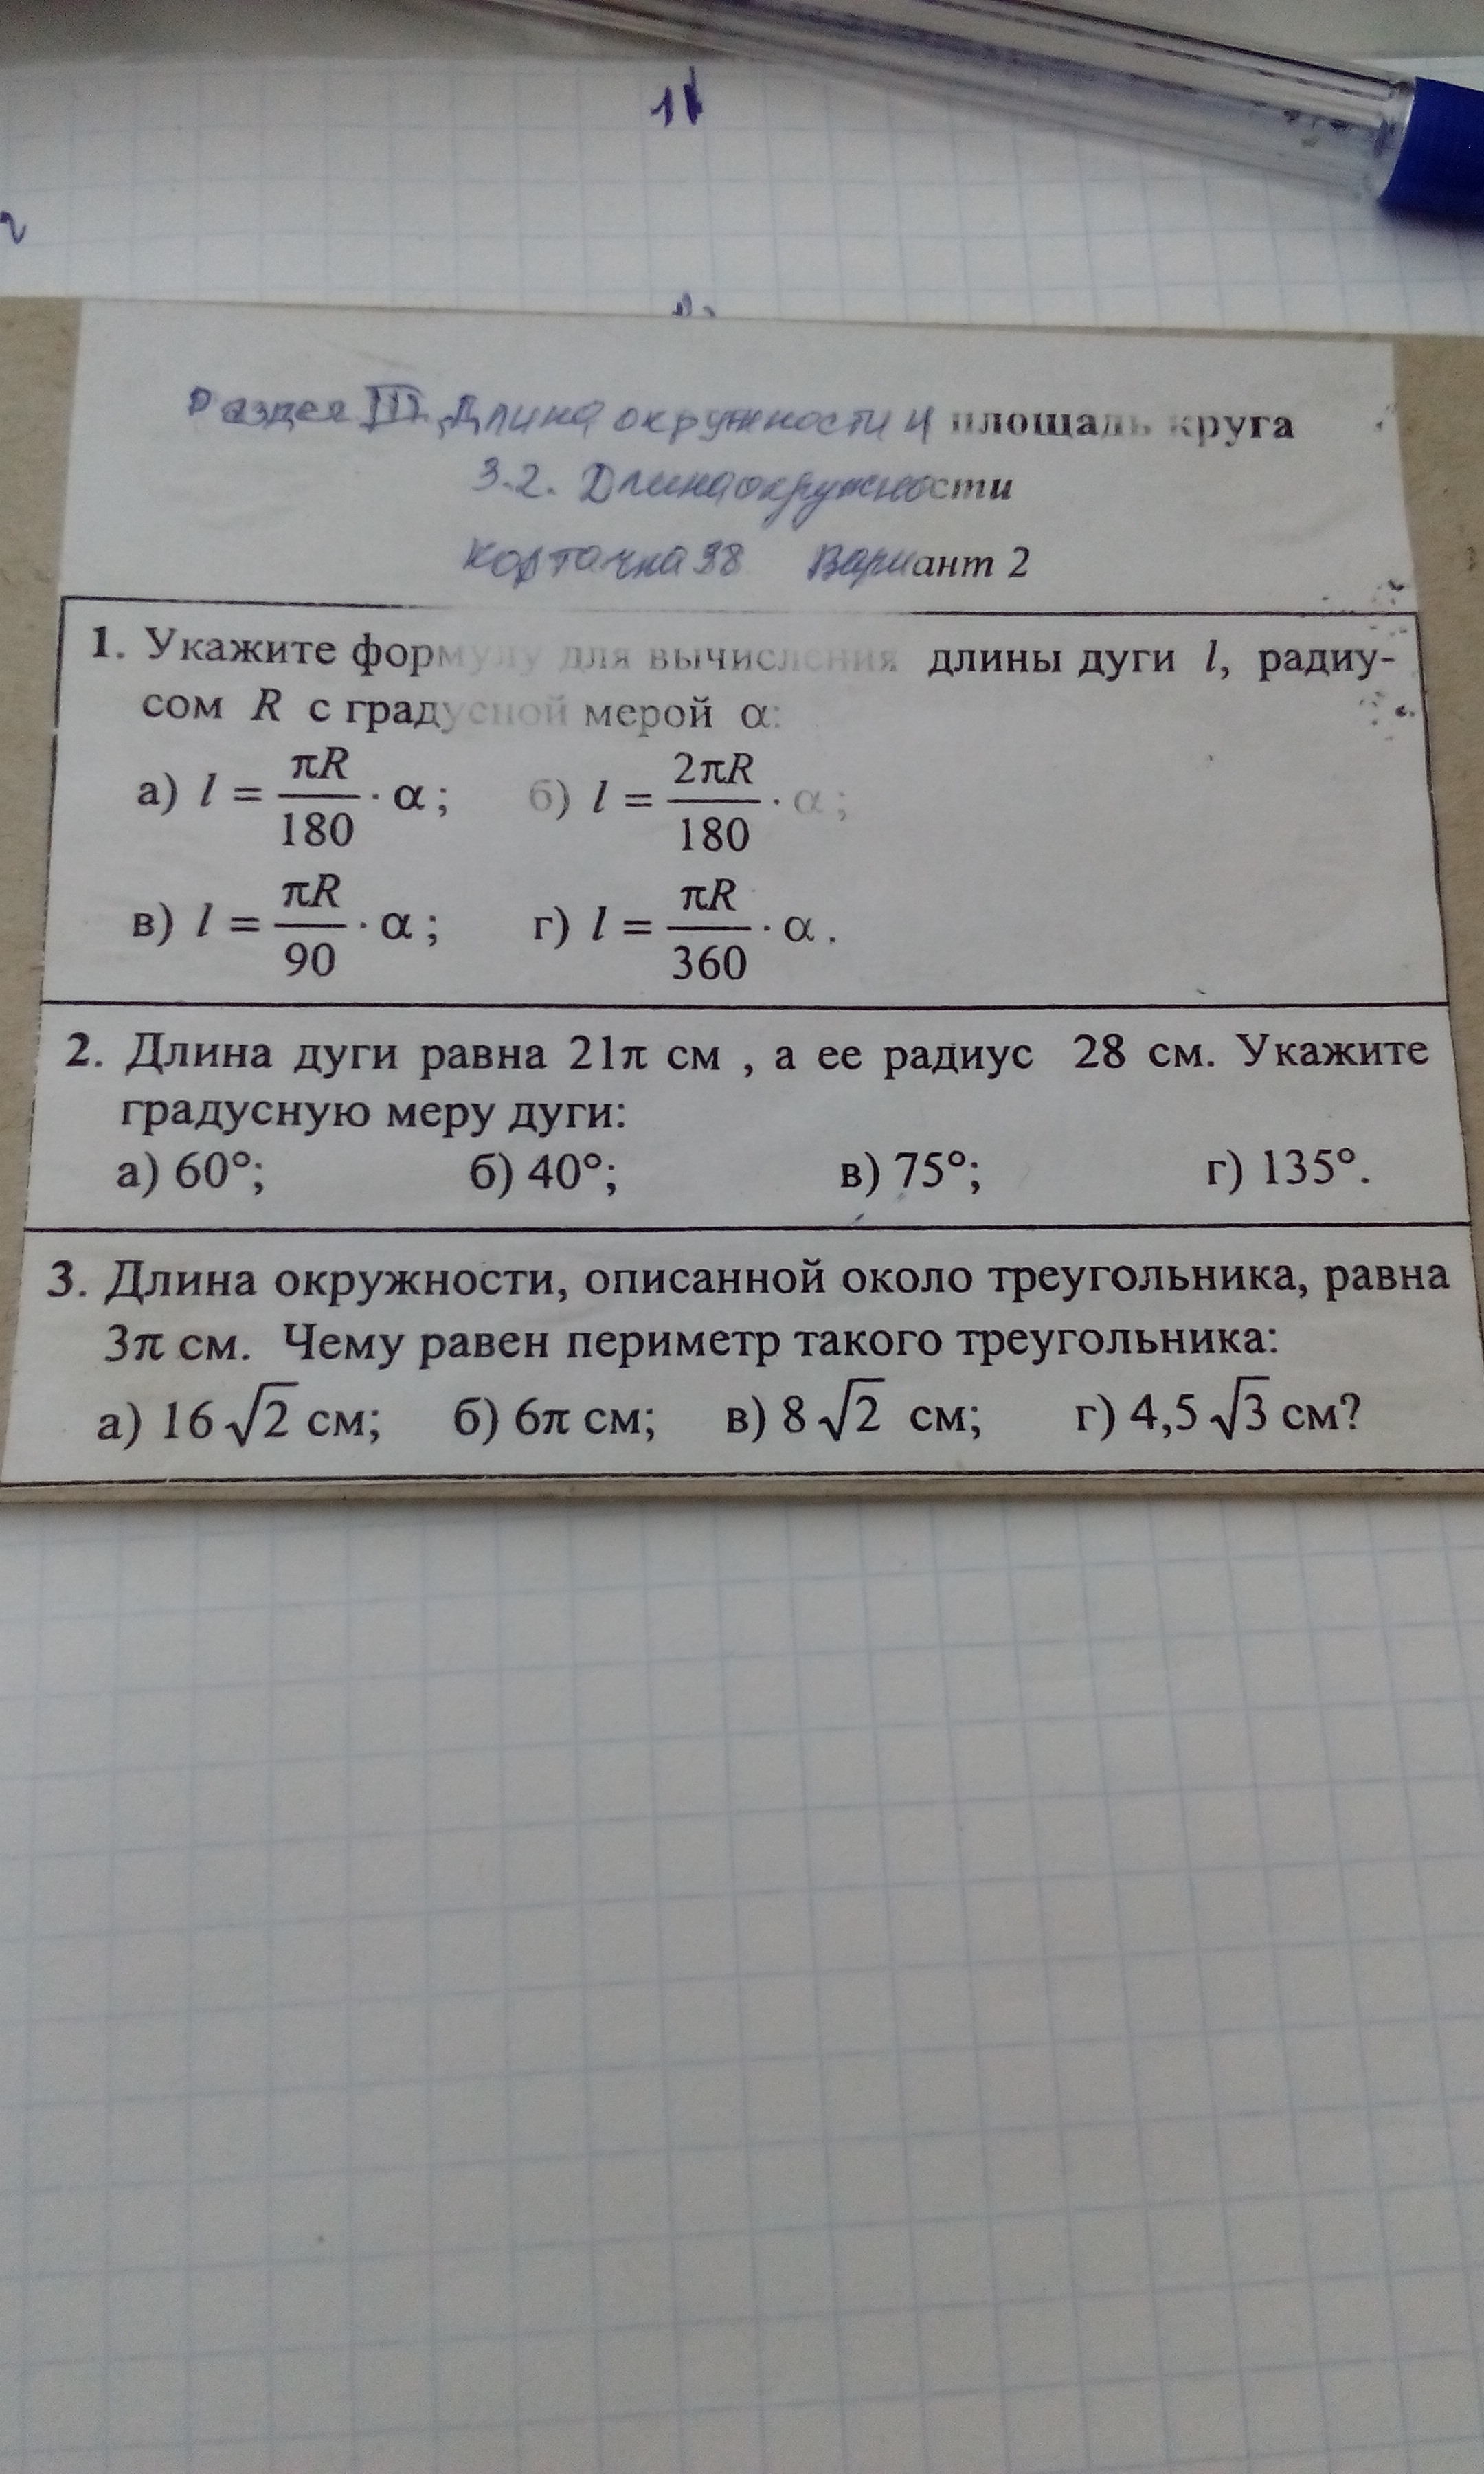 11
Раздел III. Длина окружности и площадь круга
3.2. Длина окружности
Карточка 38 Вариант 2
1. Укажите формулу для вычисления длины дуги l, радиу-
сом R с градусной мерой α:
а) l = πR/180 · α; б) l = 2πR/180 · α;
в) l = πR/90 · α; г) l = πR/360 · α.
2. Длина дуги равна 21π см , а ее радиус 28 см. Укажите
градусную меру дуги:
а) 60°; б) 40°; в) 75°; г) 135°.
3. Длина окружности, описанной около треугольника, равна
3π см. Чему равен периметр такого треугольника:
а) 16√2 см; б) 6π см; в) 8√2 см; г) 4,5√3 см?